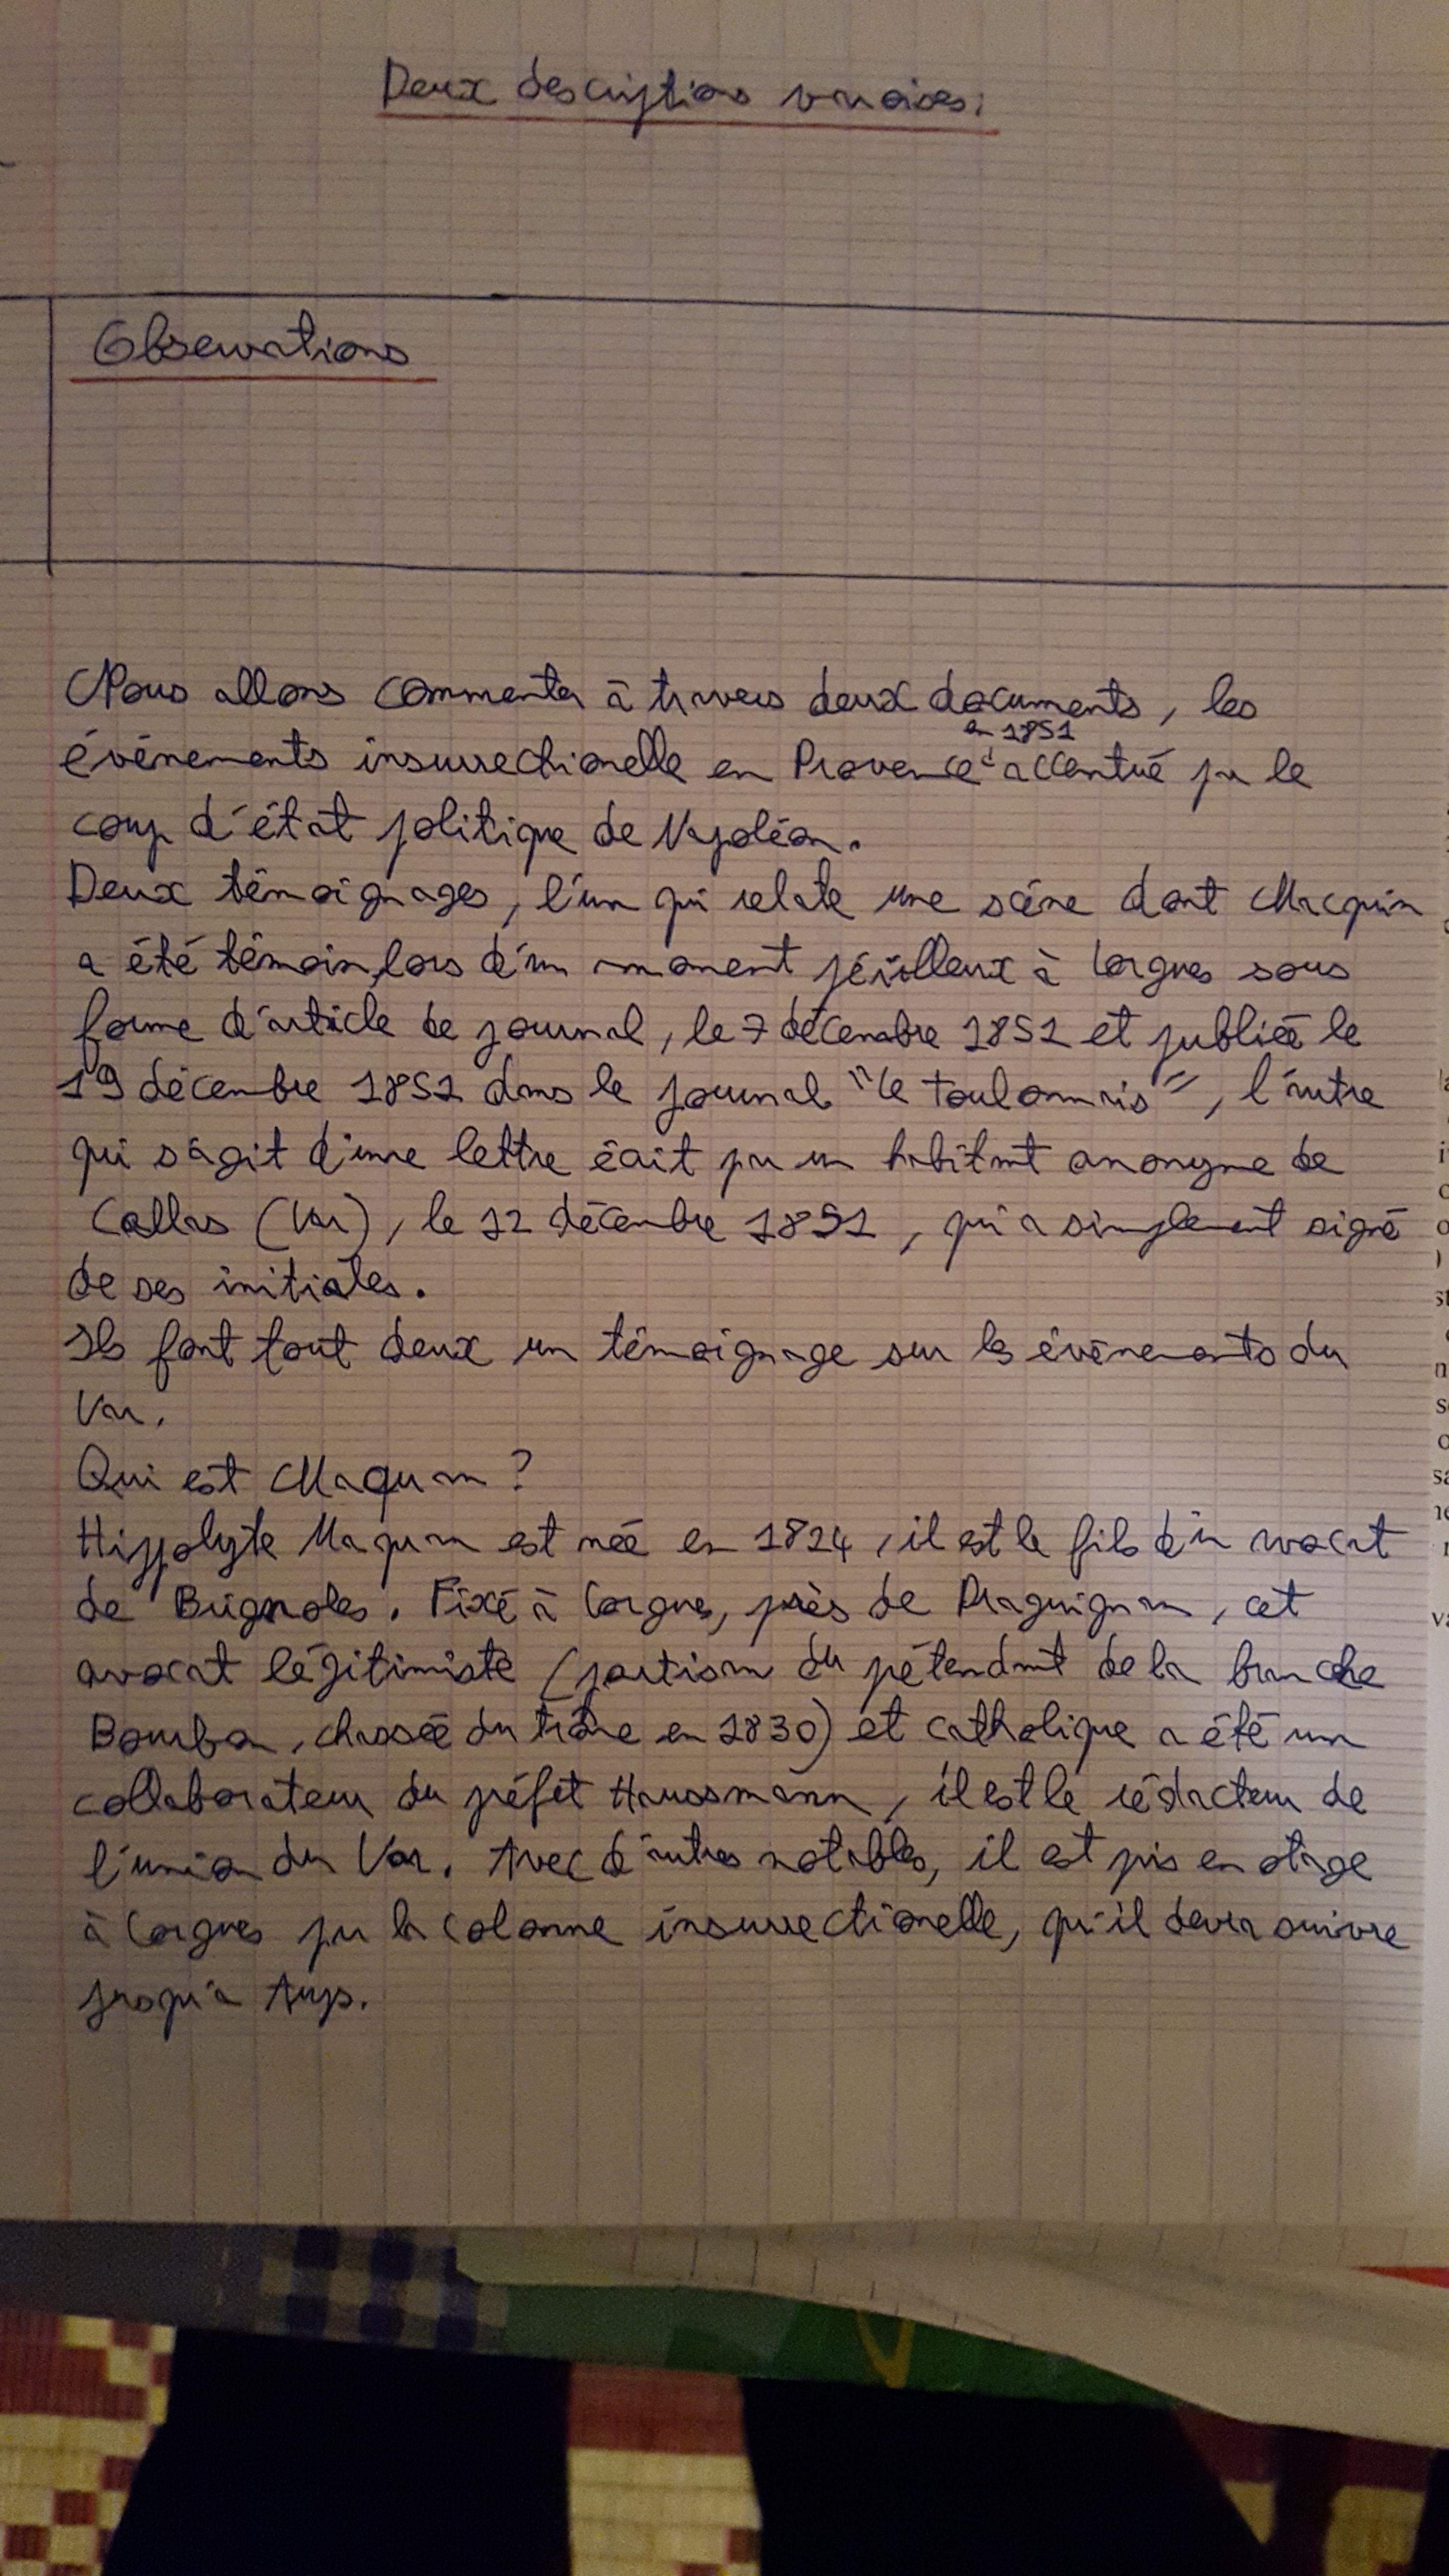 Deux descriptions varoises:
Observations
Nous allons commenter à travers deux documents, les
en 1851
événements insurrectionelle en Provence accentué par le
coup d'état politique de Napoléon.
Deux témoignages, l'un qui relate une scène dont Macquan
a été témoin, lors d'un moment périlleux à Lorgues sous
forme d'article de journal, le 7 décembre 1851 et publiée le
19 décembre 1851 dans le journal "le toulonnais", l'autre
qui s'agit d'une lettre écrit par un habitant anonyme de
Callas (Var), le 12 décembre 1851, qui a simplement signé
de ses initiales.
Ils font tout deux un témoignage sur les événements du
Var.
Qui est Maquan ?
Hippolyte Maquan est née en 1824, il est le fils d'un avocat
de Brignoles. Fixé à Lorgues, près de Draguignan, cet
avocat légitimiste (partisan du prétendant de la branche
Bourbon, chassée du trône en 1830) et catholique a été un
collaborateur du préfet Haussmann, il est le rédacteur de
l'union du Var. Avec d'autres notables, il est pris en otage
à Lorgues par la colonne insurrectionelle, qu'il devra suivre
jusqu'a Aups.